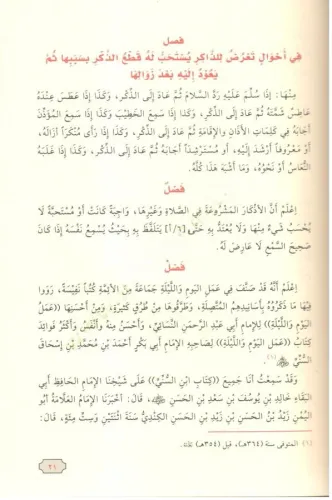 فصل
فِي أَحْوَالٍ تَعْرِضُ لِلذَّاكِرِ يُسْتَحَبُّ لَهُ قَطْعُ الذِّكْرِ بِسَبَبِها ثُمَّ
يَعُودُ إِلَيْهِ بَعْدَ زَوَالِهَا
مِنْهَا: إِذَا سُلِّمَ عَلَيْهِ رَدَّ السَّلَامَ ثُمَّ عَادَ إِلَى الذِّكْرِ، وَكَذَا إِذَا عَطَسَ عِنْدَهُ
عَاطِسٌ شَمَّتَهُ ثُمَّ عَادَ إِلَى الذِّكْرِ، وَكَذَا إِذَا سَمِعَ الخَطِيْبَ وَكَذَا إِذَا سَمِعَ المُؤَذِّنَ
أَجَابَهُ فِي كَلِمَاتِ الأَذَانِ وَالإِقَامَةِ ثُمَّ عَادَ إِلَى الذِّكْرِ، وَكَذَا إِذَا رَأَى مُنْكَرًا أَزَالَهُ،
أَوْ مَعْرُوفًا أَرْشَدَ إِلَيْهِ، أَو مُسْتَرْشِدًا أَجَابَهُ ثُمَّ عَادَ إِلَى الذِّكْرِ، وَكَذَا إِذَا غَلَبَهُ
النُّعَاسُ أَوْ نَحْوُهُ، وَمَا أَشْبَهَ هَذَا كُلَّهُ.
فَصْلٌ
اِعْلَمْ أَنَّ الأَذْكَارَ المَشْرُوعَةَ فِي الصَّلاةِ وَغَيْرِهَا، وَاجِبَةً كَانَتْ أَوْ مُسْتَحَبَّةً لَا
يُحْسَبُ شَيءٌ مِنْهَا وَلَا يُعْتَدُّ بِهِ حَتَّى [٦/أ] يَتَلَفَّظَ بِهِ بِحَيْثُ يُسْمِعُ نَفْسَهُ إِذَا كَانَ
صَحِيحَ السَّمْعِ لَا عَارِضَ لَهُ.
فَصْلٌ
اِعْلَمْ أَنَّهُ قَدْ صَنَّفَ فِي عَمَلِ اليَوْمِ وَاللَّيْلَةِ جَمَاعَةٌ مِنَ الأَئِمَّةِ كُتُبًا نَفِيْسَةً، رَوَوا
فِيهَا مَا ذَكَرُوهُ بِأَسَانِيدِهِمُ المُتَّصِلَةِ، وَطَرَّقُوهَا مِنْ طُرُقٍ كَثِيرَةٍ، وَمِنْ أَحْسَنِهَا ((عَمَلُ
اليَوْمِ وَاللَّيْلَةِ)) لِلإِمَامِ أَبِي عَبْدِ الرَّحْمَنِ النَّسَائِيِّ، وَأَحْسَنُ مِنْهُ وَأَنْفَسُ وَأَكْثَرُ فَوَائِدَ
كِتَابُ ((عَمَلِ اليَوْمِ وَاللَّيْلَةِ)) لِصَاحِبِهِ الإِمَامِ أَبِي بَكْرٍ أَحْمَدَ بْنِ مُحَمَّدِ بْنِ إِسْحَاقَ
السُّنِّيِّ (١).
وَقَدْ سَمِعْتُ أَنَا جَمِيعَ ((كِتَابِ ابْنِ السُّنِّيِّ)) عَلَى شَيْخِنَا الإِمَامِ الحَافِظِ أَبِي
البَقَاءِ خَالِدِ بْنِ يُوسُفَ بْنِ سَعْدِ بْنِ الحَسَنِ، قَالَ: أَخْبَرَنَا الإِمَامُ العَلَّامَةُ أَبُو
اليُمْنِ زَيْدُ بْنُ الحَسَنِ بْنِ زَيْدِ بْنِ الحَسَنِ الكِنْدِيُّ سَنَةَ اثْنَتَيْنِ وَسِتِّ مِئَةٍ، قَالَ:
(١) المتوفى سنة (٣٦٤هـ)، قيل (٣٥٤هـ)
٢١